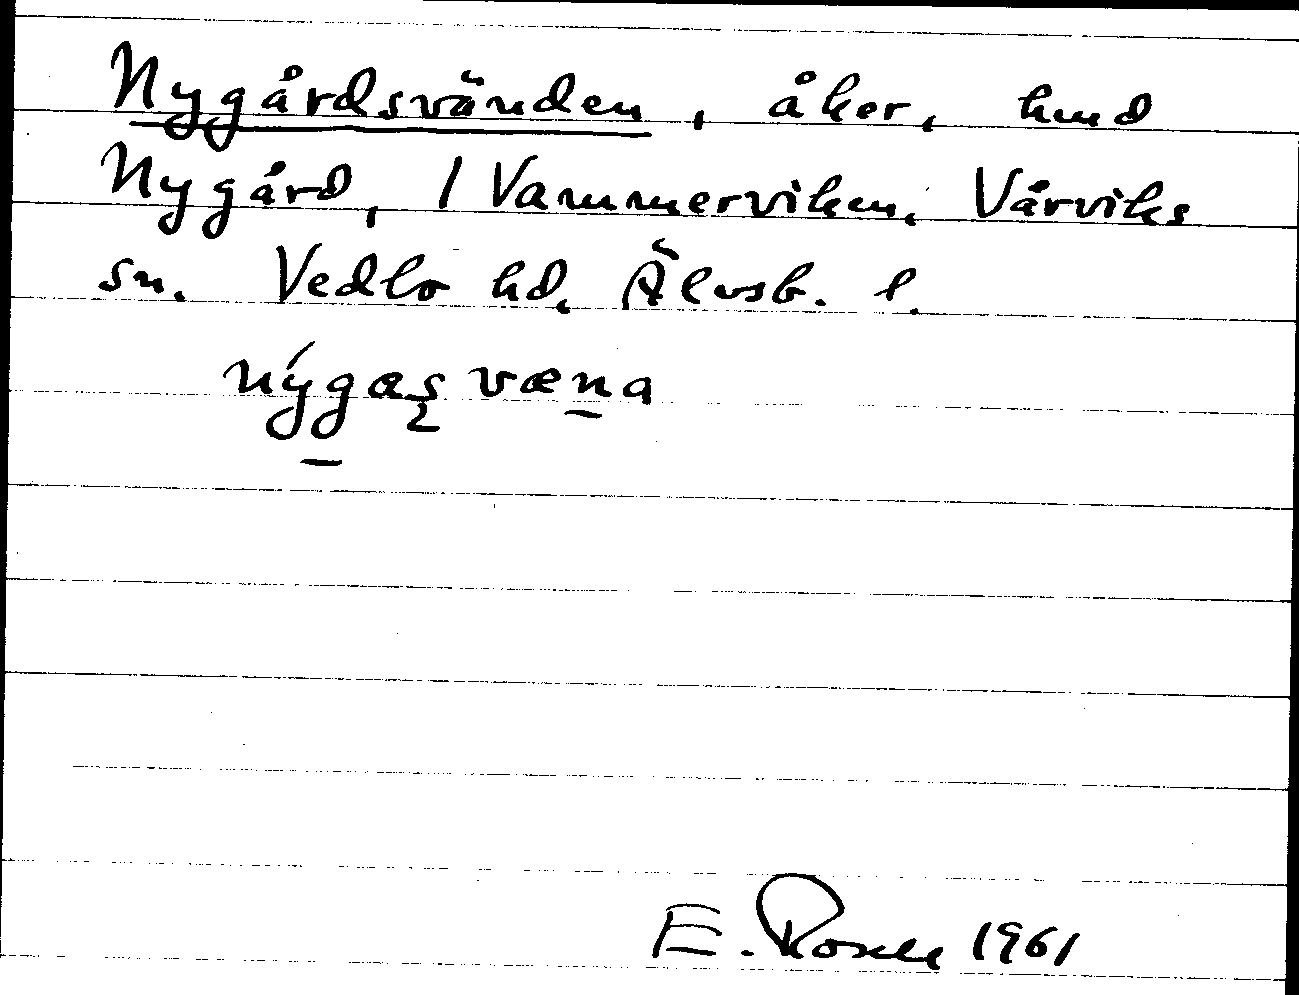 Nygårdsvänden, åker, hmd
Nygård, 1 Vammerviken, Vårviks
sn. Vedbo hd. Älvsb. l.
nýgas̨ væna
E. Rosell 1961